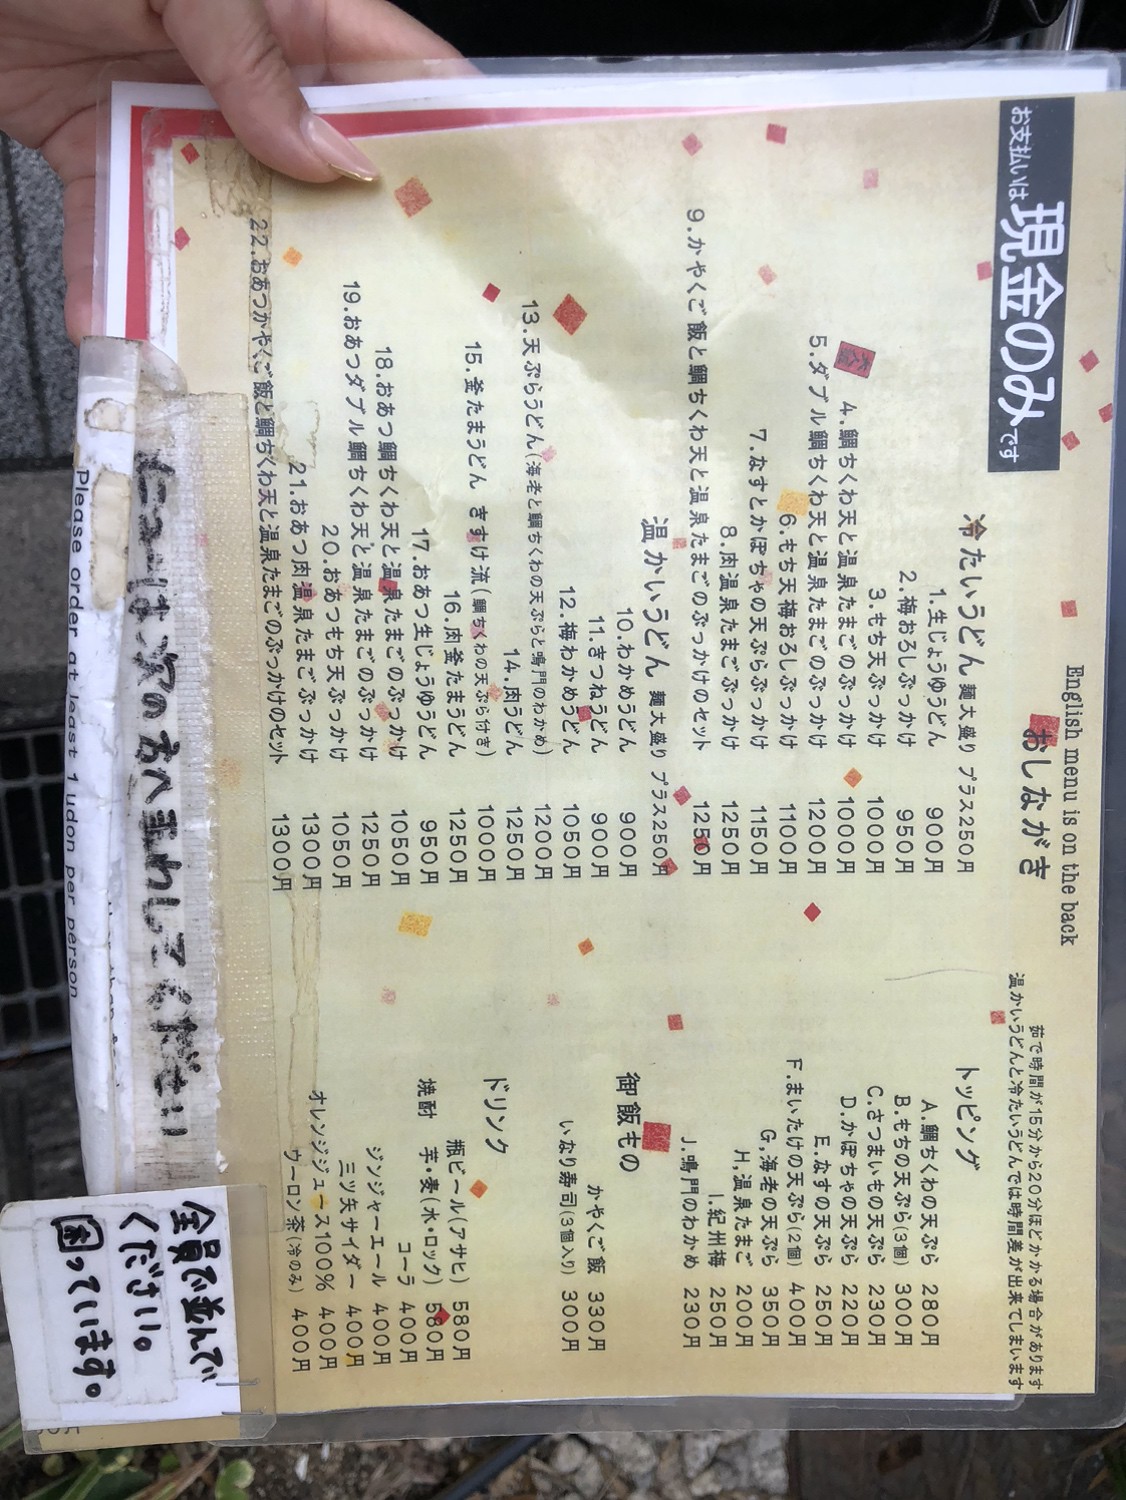 お支払いは現金のみです
English menu is on the back
おしながき
茹で時間が15分から20分ほどかかる場合があります
温かいうどんと冷たいうどんでは時間差が出来てしまいます
冷たいうどん 麺大盛り プラス250円
1.生じょうゆうどん 900円
2.梅おろしぶっかけ 950円
3.もち天ぶっかけ 1000円
大盛
4.鯛ちくわ天と温泉たまごのぶっかけ 1000円
5.ダブル鯛ちくわ天と温泉たまごのぶっかけ 1200円
6.もち天梅おろしぶっかけ 1100円
7.なすとかぼちゃの天ぷらぶっかけ 1150円
8.肉温泉たまごぶっかけ 1250円
9.かやくご飯と鯛ちくわ天と温泉たまごのぶっかけのセット 1250円
温かいうどん 麺大盛り プラス250円
10.わかめうどん 900円
11.きつねうどん 900円
12.梅わかめうどん 1050円
13.天ぷらうどん(海老と鯛ちくわの天ぷらと鳴門のわかめ) 1200円
14.肉うどん 1250円
15.釜たまうどん きすけ流(鯛ちくわの天ぷら付き) 1000円
16.肉釜たまうどん 1250円
17.おあつ生じょうゆうどん 950円
18.おあつ鯛ちくわ天と温泉たまごのぶっかけ 1050円
19.おあつダブル鯛ちくわ天と温泉たまごのぶっかけ 1250円
20.おあつもち天ぶっかけ 1050円
21.おあつ肉温泉たまごぶっかけ 1300円
22.おあつかやくご飯と鯛ちくわ天と温泉たまごのぶっかけのセット 1300円
トッピング
A.鯛ちくわの天ぷら 280円
B.もちの天ぷら(3個) 300円
C.さつまいもの天ぷら 230円
D.かぼちゃの天ぷら 220円
E.なすの天ぷら 250円
F.まいたけの天ぷら(2個) 400円
G.海老の天ぷら 350円
H.温泉たまご 200円
I.紀州梅 250円
J.鳴門のわかめ 230円
御飯もの
かやくご飯 330円
いなり寿司(3個入り) 300円
ドリンク
瓶ビール(アサヒ) 580円
焼酎 芋・麦(水・ロック) 580円
コーラ 400円
ジンジャーエール 400円
三ツ矢サイダー 400円
オレンジジュース100% 400円
ウーロン茶(冷のみ) 400円
は次の方へまわしてください
Please order at least 1 udon per person
全員で並んで
ください。
困っています。